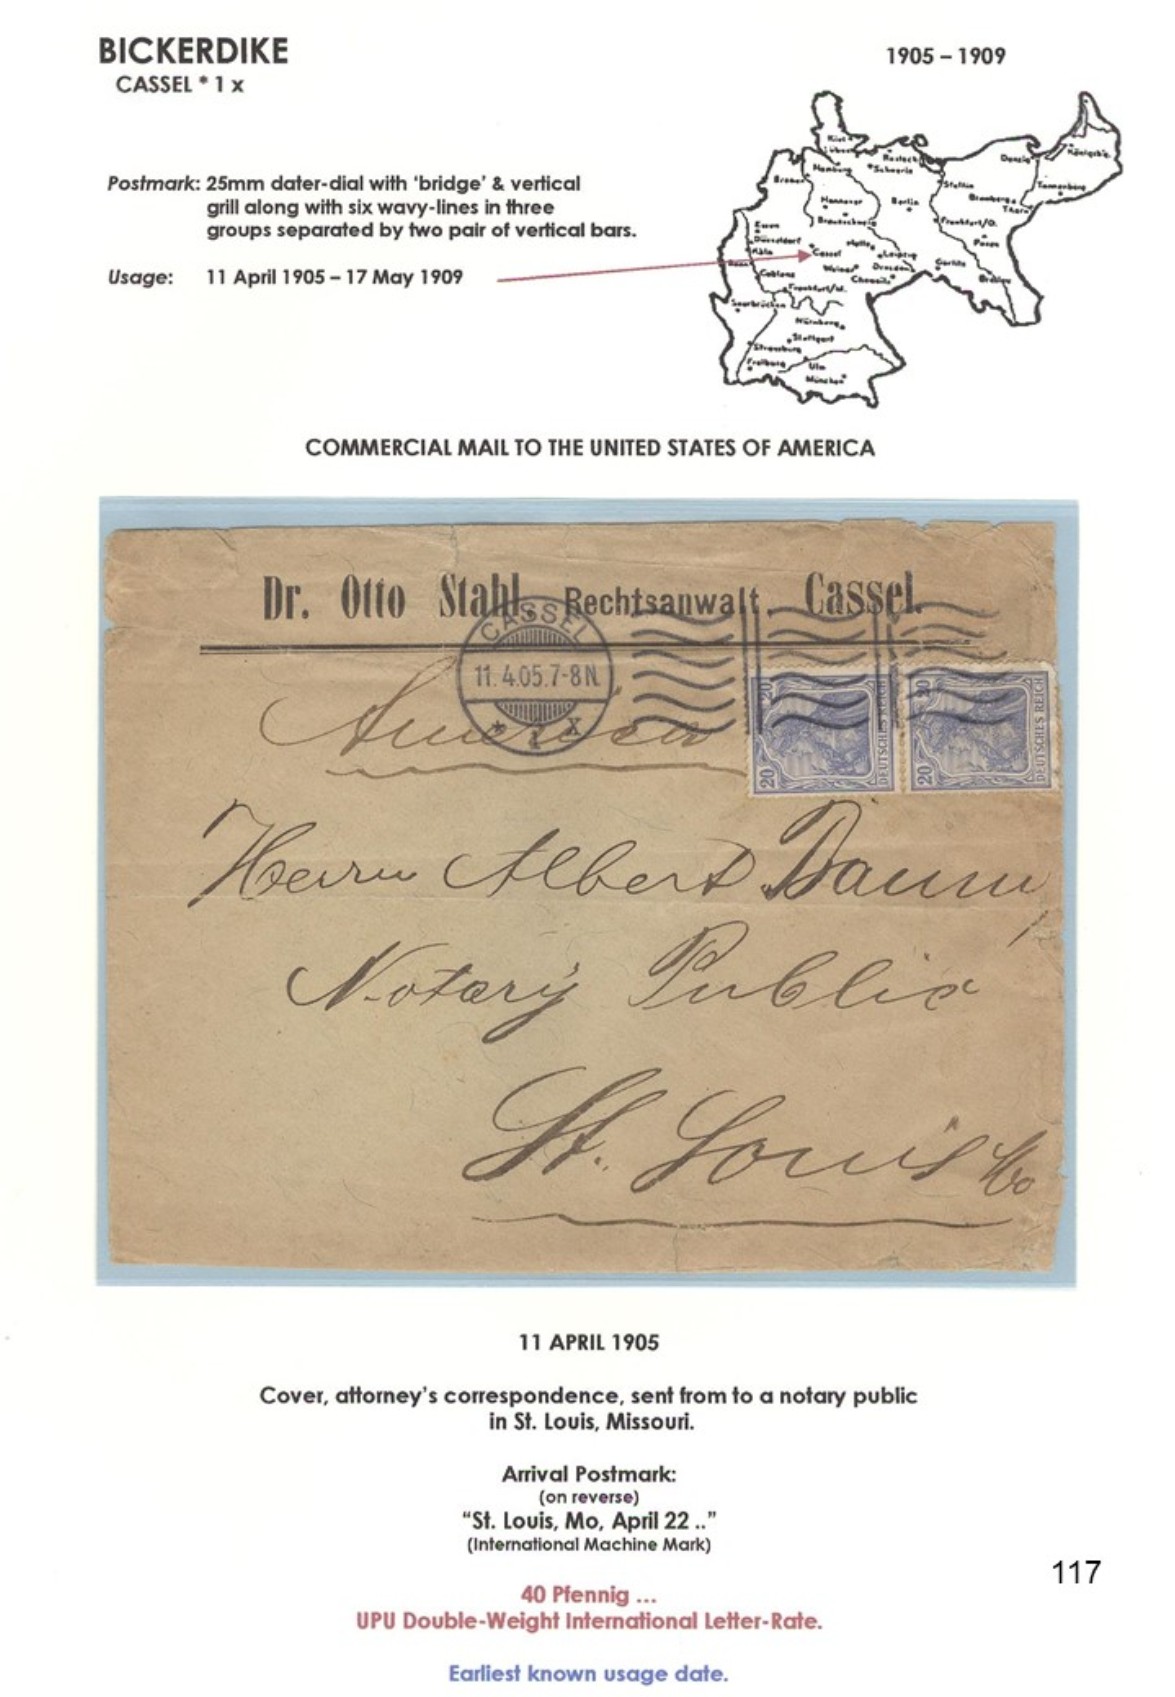 BICKERDIKE
CASSEL * 1 x
1905 – 1909
Postmark: 25mm dater-dial with ‘bridge’ & vertical
grill along with six wavy-lines in three
groups separated by two pair of vertical bars.
Usage: 11 April 1905 – 17 May 1909
Kiel
Lübeck
Rostock
Hamburg
Schwerin
Bremen
Stettin
Danzig
Königsbg.
Tannenberg
Bromberg
Thorn
Hannover
Berlin
Braunschweig
Frankfurt/O.
Posen
Essen
Düsseldorf
Köln
Bonn
Cassel
Halle
Leipzig
Weimar
Dresden
Görlitz
Coblenz
Chemnitz
Breslau
Frankfurt/M.
Saarbrücken
Nürnberg
Stuttgart
Strassburg
Freiburg
Ulm
München
COMMERCIAL MAIL TO THE UNITED STATES OF AMERICA
Dr. Otto Stahl, Rechtsanwalt, Cassel.
CASSEL
11.4.05.7-8N.
* 1 X
20 20 DEUTSCHES REICH
20 20 DEUTSCHES REICH
America
Herrn Albert Damm,
Notary Public
St. Louis Mo
11 APRIL 1905
Cover, attorney’s correspondence, sent from to a notary public
in St. Louis, Missouri.
Arrival Postmark:
(on reverse)
“St. Louis, Mo, April 22 ..”
(International Machine Mark)
117
40 Pfennig ...
UPU Double-Weight International Letter-Rate.
Earliest known usage date.